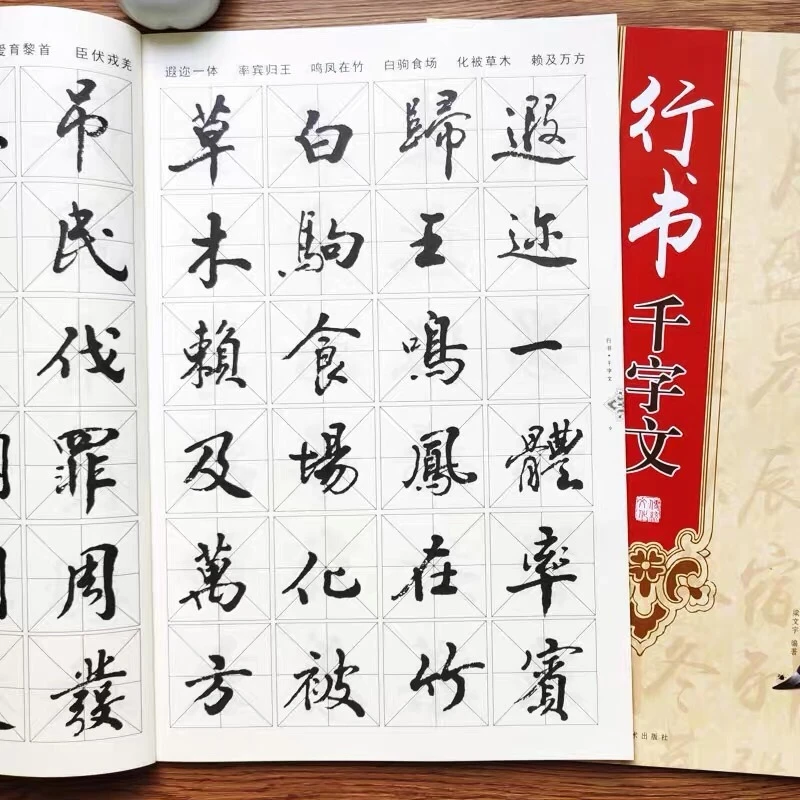 爱育黎首 臣伏戎羌
吊民伐罪周發
遐迩一体 率宾归王 鸣凤在竹 白驹食场 化被草木 赖及万方
遐迩一體率賓
歸王鳴鳳在竹
白駒食場化被
草木賴及萬方
行书·千字文
行书
千字文
编著
术出版社